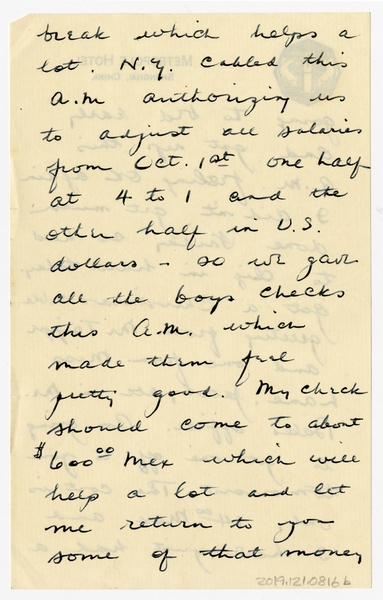 break which helps a
lot. N.Y. cabled this
A.M authorizing us
to adjust all salaries
from Oct. 1st one half
at 4 to 1 and the
other half in U.S.
dollars - so we gave
all the boys checks
this A.M. which
made them feel
pretty good. My check
should come to about
$600.00 Mex which will
help a lot and let
me return to you
some of that money
2019.121.0816b